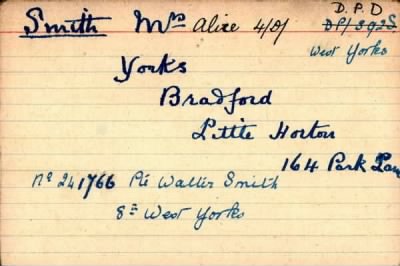 D.P.D
Smith Mrs Alice 4/D/ DP/392S
West Yorks
Yorks
Bradford
Little Horton
164 Park Lan
No 241766 Pte Walter Smith
8th West Yorks